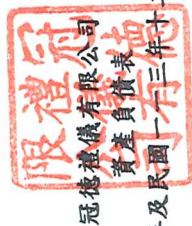 冠德禮儀有限公司
資產負債表
及民國一一三年十